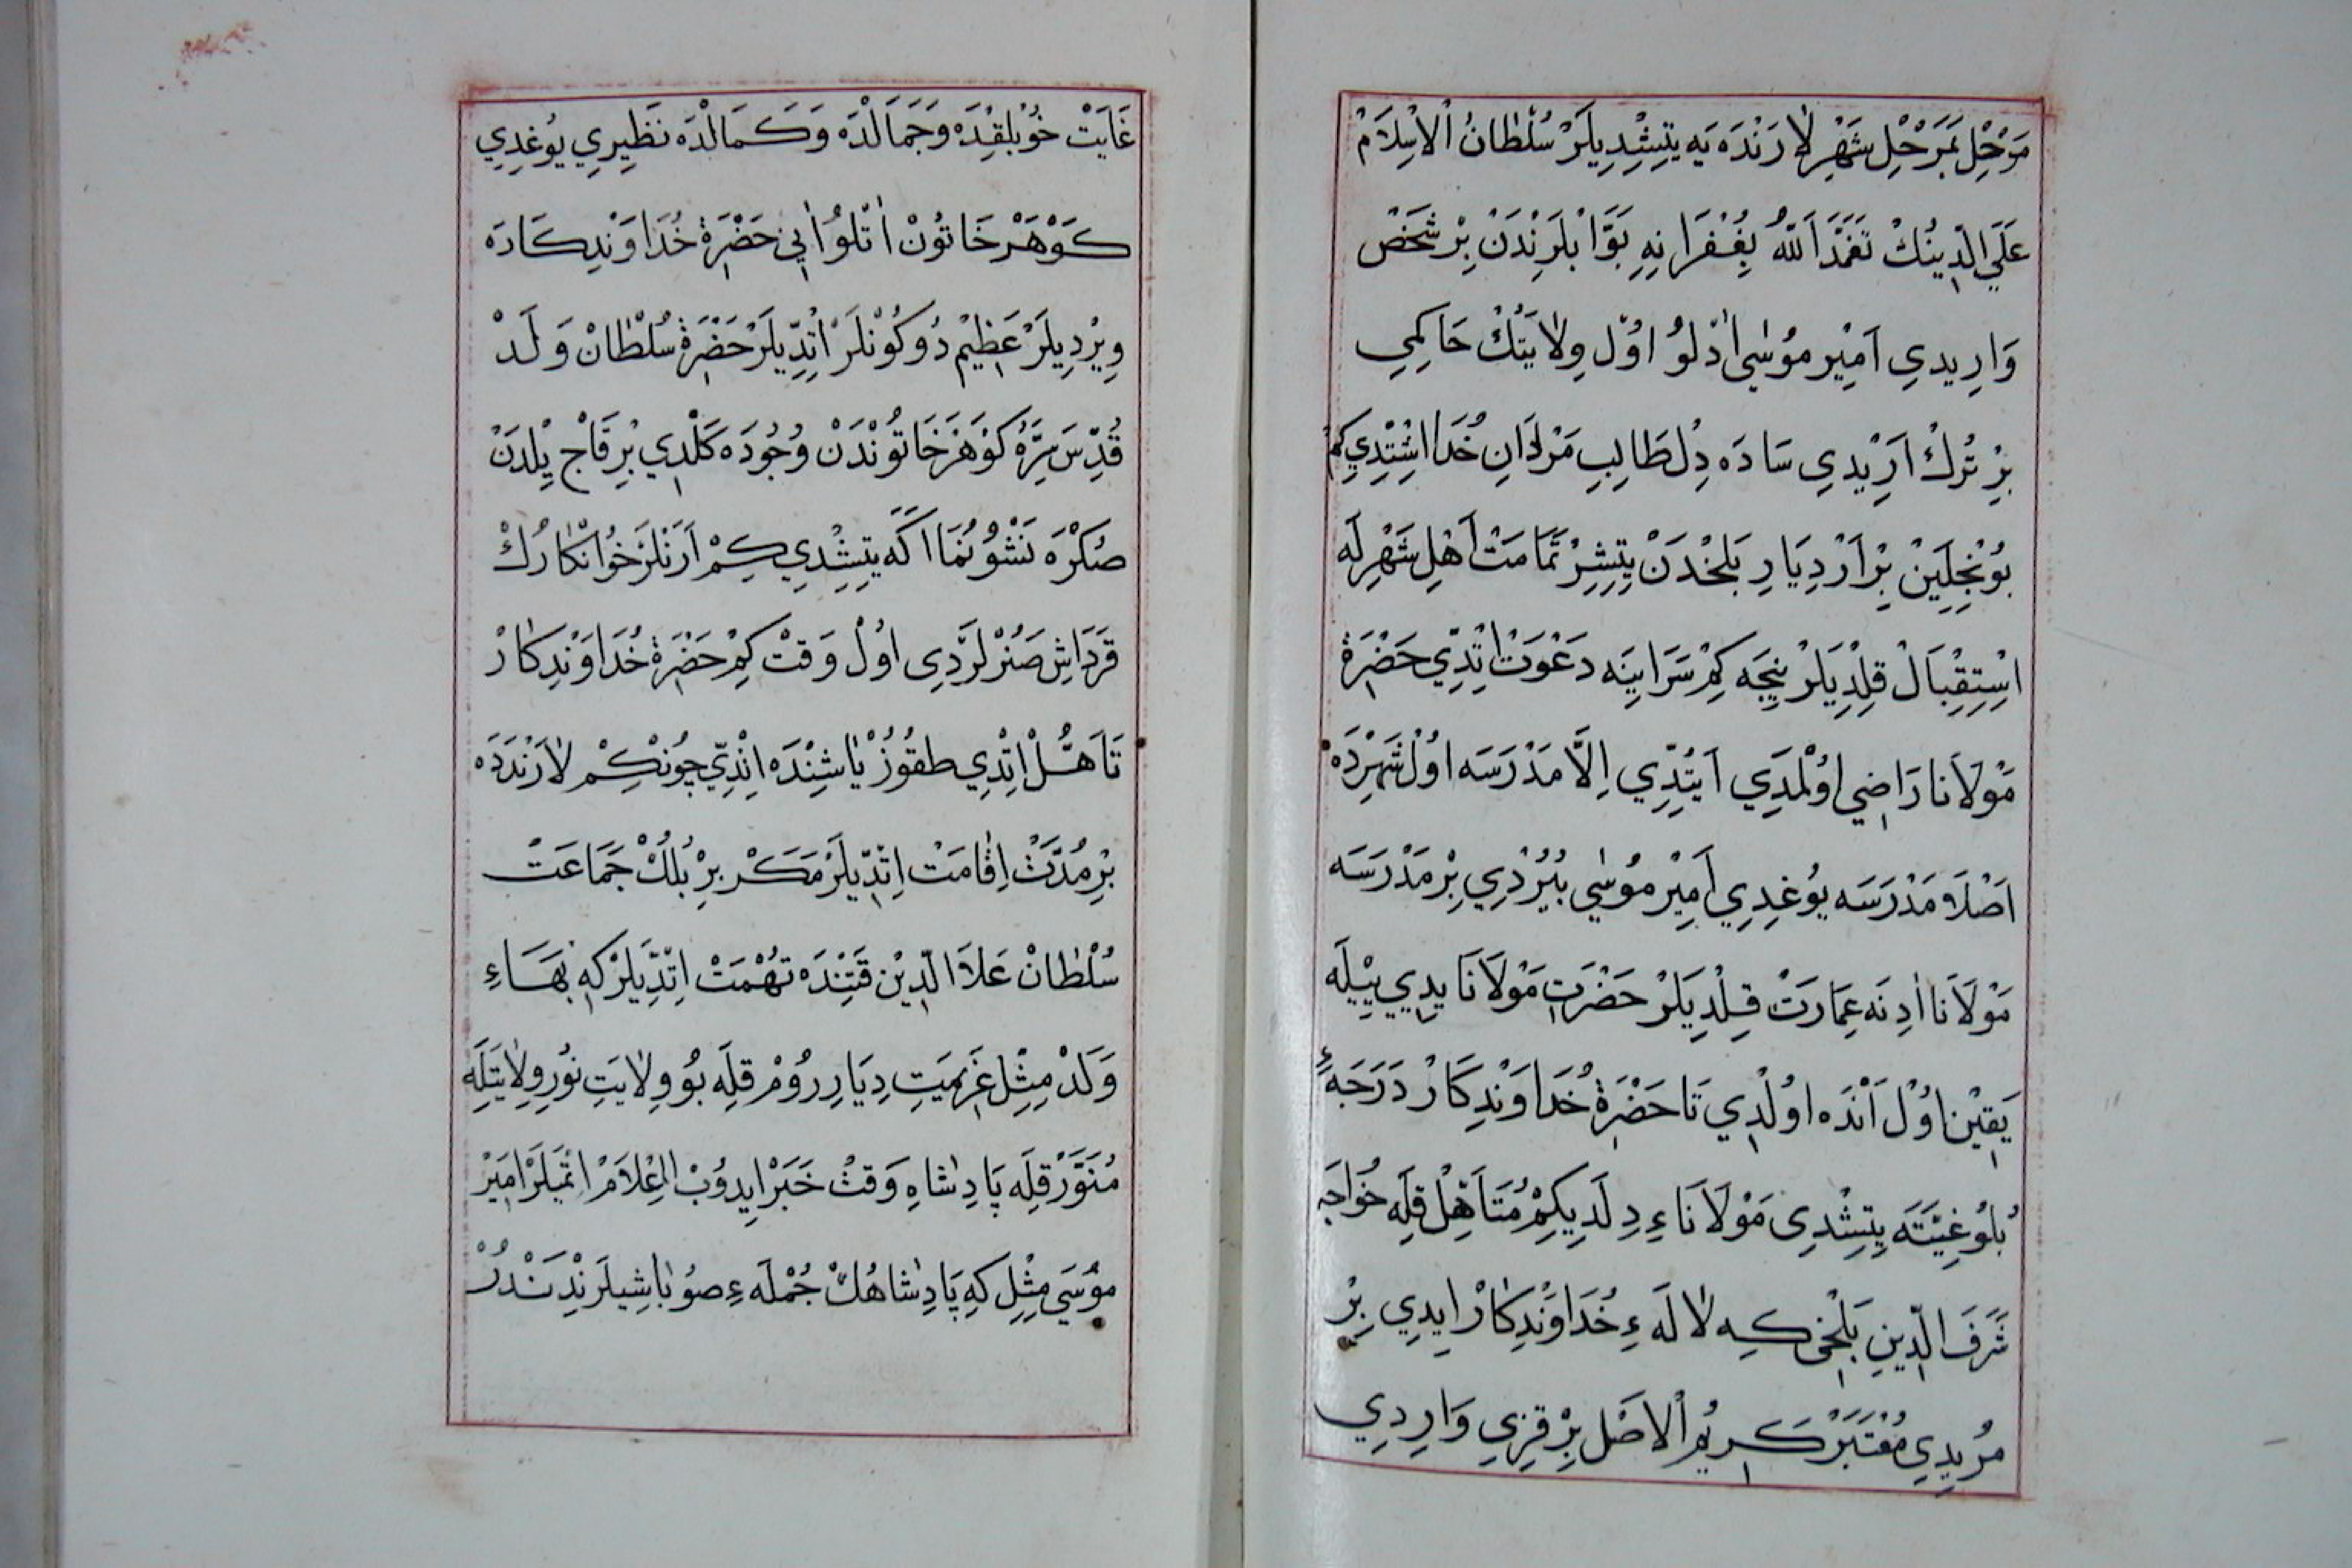 مَرْحِلْ بَمَرْحِلْ شَهْرِ لَارَنْدَه يَه يِتِشْدِيلَرْ سُلْطَانُ الْاِسْلَامْ
عَلَي الدِّينُكْ تَغَمَّدَ اللّٰهُ بِغُفْرَانِهِ بَوَّابْلَرِنْدَنْ بِرْ شَخْصْ
وَارِيدِي اَمِيْر مُوسٰى اٰدْلُو اوُّل وِلَايَتُكْ حَاكِمِي
بِرْ تُرْكْ اَرِيْدِي سَادَه دِلْ طَالِبِ مَرْدَانِ خُدَا اشِتْدِي كِمْ
بُونْجِلَيْنْ بِرْ اَرْ دِيَارِ بَلْخْدَنْ يِتِشِرْ تَمَامَتْ اَهْلِ شَهْرِلَه
اِسْتِقْبَالْ قِلْدِيلَرْ نِيجَه كِمْ سَرَايِنَه دَعْوَتْ اتِدِّي حَضْرَةْ
مَوْلَانَا رَاضِي اوُلْمَدِي اَيْتِدِّي اِلَّا مَدْرَسَه اوُلْ شَهِرْدَه
اَصْلَا مَدْرَسَه يوُغِدِي اَمِيْر مُوسٰي بُيُرْدِي بِرْ مَدْرَسَه
مَوْلَانَا اٰدِنَه عِمَارَتْ قِلْدِيلَرْ حَضْرَتِ مَوْلَانَا يِدِي يِيْلَه
يَقِيْن اوُلْ اَنْدَه اوُلْدِي تَا حَضْرَةْ خُدَاوَنْدِكَارْ دَرَجَهءِ
بُلوُغِيْتَه يِتِشْدِى مَوْلَانَاءِ دِلَدِيكِمْ مُتَأَهِّلْ قِلَه خُوَاجَه
شَرَفَ الدِّينِ بَلْخِى كِه لَالَهءِ خُدَاوَنْدِكَارْ اِيدِي بِرْ
مُرِيدِي مُعْتَبَرْ كَرِيْمُ الْاَصْل بِرْ قِزِي وَارِدِي
غَايَتْ خُوبْلِقْدَه وَجَمَالْدَه وَكَمَالْدَه نَظِيرِي يوُغِدِي
كَوْهَرْ خَاتُونْ اٰتْلوُ اٰنِي حَضْرَةْ خُدَاوَنْدِكَارَه
وِيرْدِيلَرْ عَظِيْم دُوكُونْلَرْ اتِدِّيلَرْ حَضْرَةْ سُلْطَانْ وَلَدْ
قُدِّسَ سِرَّهُ كَوْهَرْ خَاتوُنْدَنْ وُجُودَه كَلْدِي بِرْ قَاچ يِلْدَنْ
صُكْرَه نَشْوُ نُمَا اَكَه يِتِشْدِي كِمْ اَرَنْلَرْ خُوانْكَارُكْ
قَرَدَاشِ صَنُرْلَرْدِى اوُلْ وَقتْ كِمْ حَضْرَةْ خُدَاوَنْدِكَارْ
تَاَهُّلْ اِتْدِي طقُوزْ يَاشِنْدَه اِيْدِي چُونْكِمْ لَارَنْدَدَه
بِرْ مُدَّتْ اِقَامَتْ اِتِدِّيلَرْ مَكَرْ بِرْ بُلُكْ جَمَاعَتْ
سُلْطَانْ عَلَا الدِّيْن قَتِنْدَه تُهْمَتْ اِتِدِّيلَرْ كِه بَهَاءِ
وَلَدْ مِثِلِ عَزِيمَتِ دِيَارِ رُومْ قِلَه بُو وِلَايَتِ نُورِ وِلَايَتِلَه
مُنَوَّرْ قِلَه پَادِشَاهِ وَقتْ خَبَرْ اِيدوُبْ اِعْلَامْ اتْمِيلَرْ اَمِيْر
مُوسَي مِثِلِ كِه پَادِشَاهُكْ جُمْلَهءِ صُوبَاشِيلَرِنْدِنْدُرْ